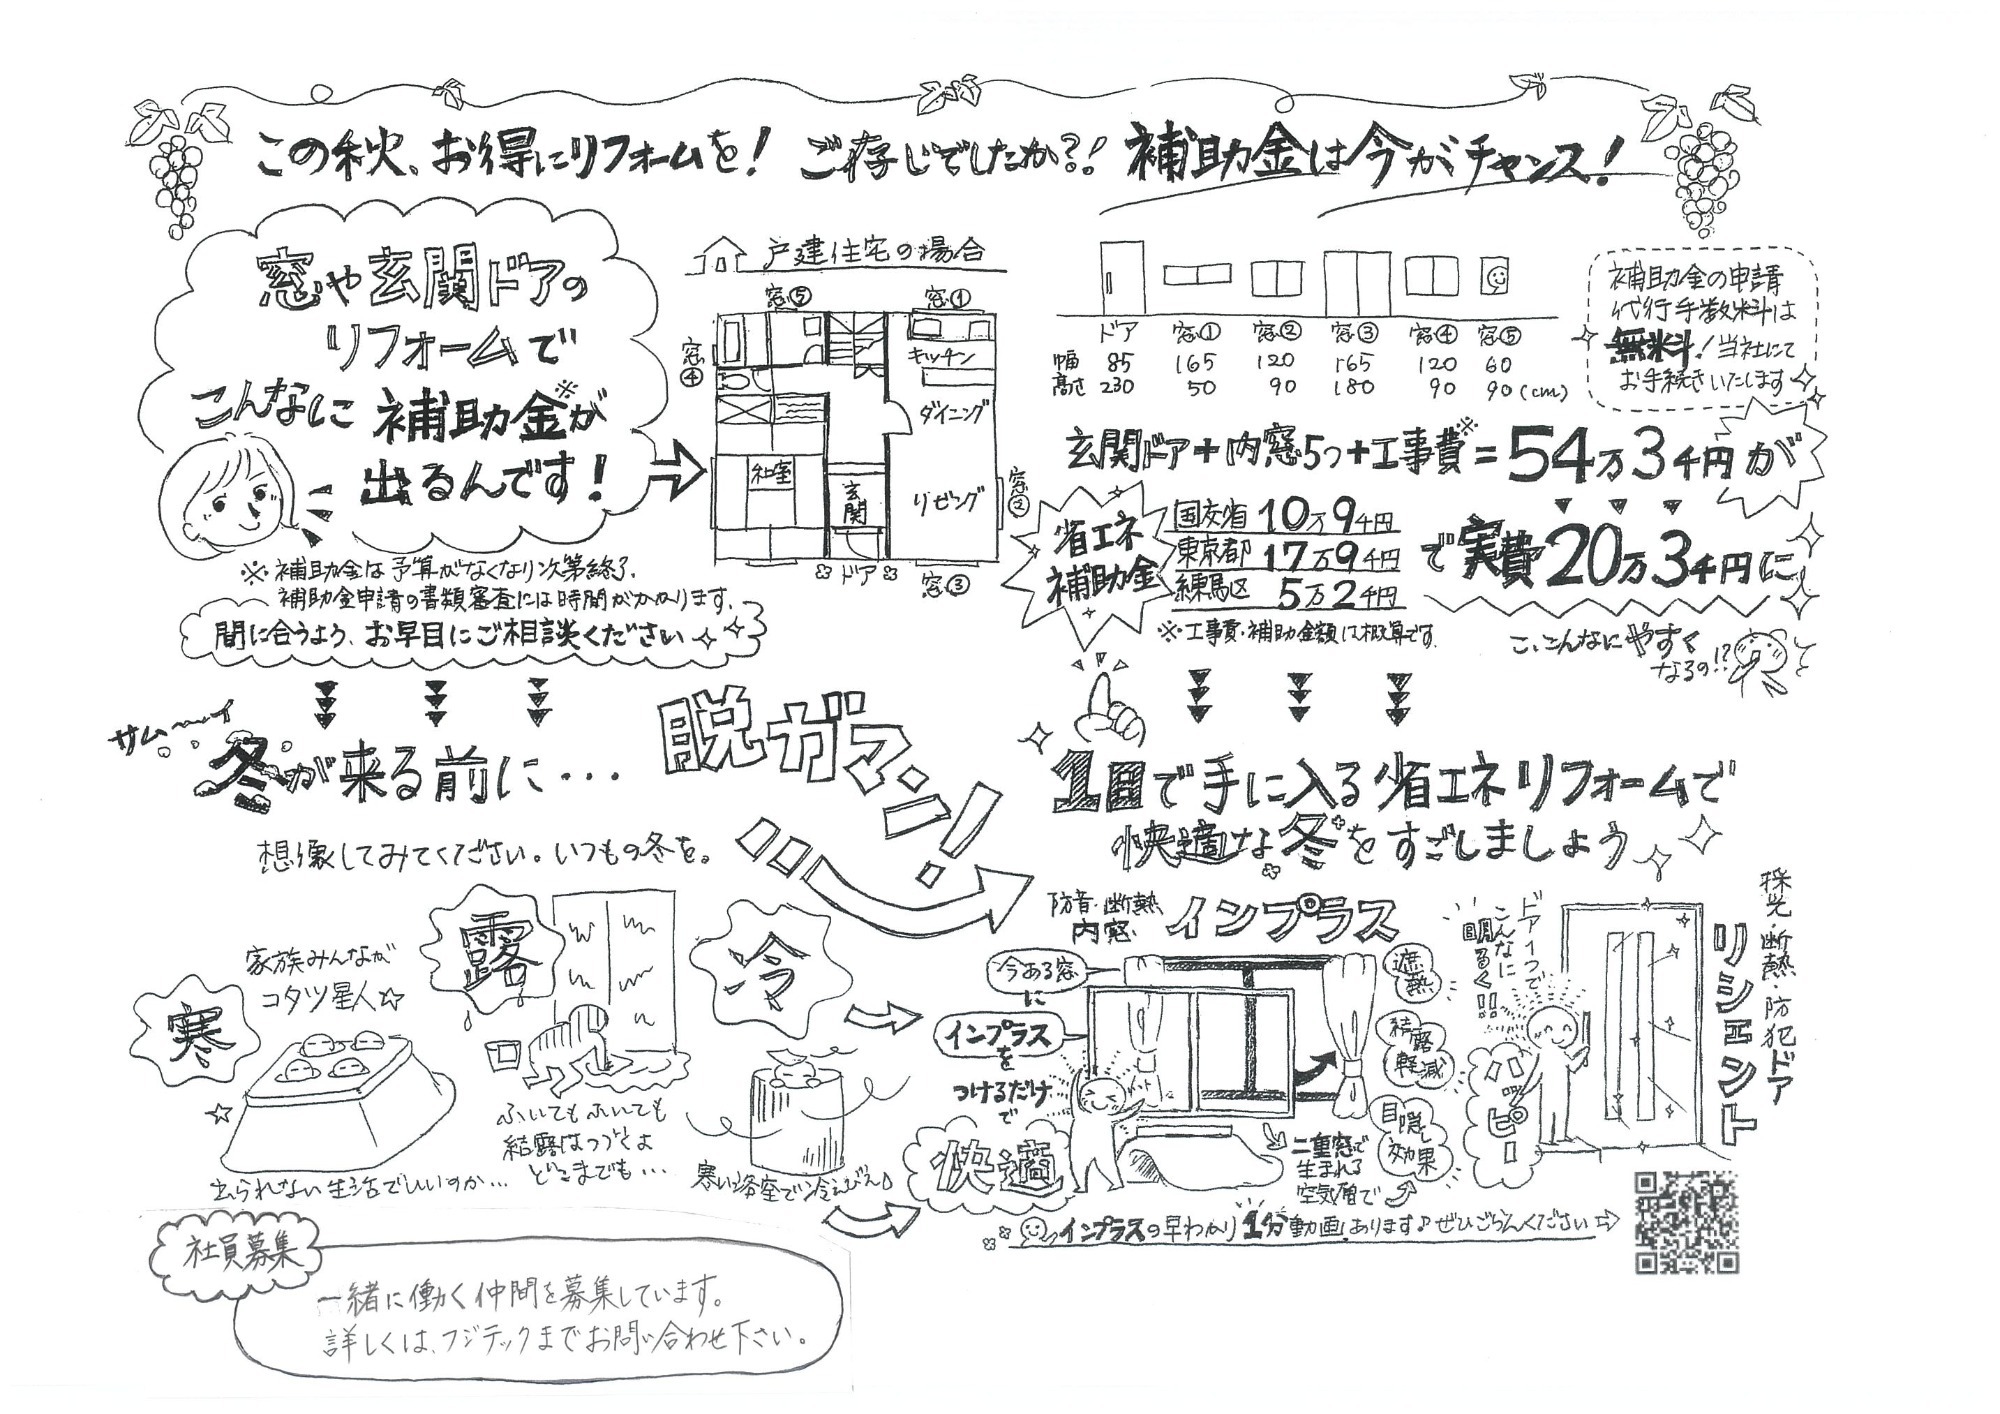 この秋、お得にリフォームを！ ご存じでしたか？！ 補助金は今がチャンス！
窓や玄関ドアの
リフォームで
こんなに補助金※が
出るんです！
※補助金は予算がなくなり次第終了。
補助金申請の書類審査には時間がかかります。
間に合うよう、お早目にご相談ください
戸建住宅の場合
窓⑤ 窓①
窓④
キッチン
ダイニング
和室
玄関
リビング
窓②
ドア 窓③
ドア 窓① 窓② 窓③ 窓④ 窓⑤
幅 85 165 120 165 120 60
高さ 230 50 90 180 90 90(cm)
補助金の申請
代行手数料は
無料！当社にて
お手続きいたします
玄関ドア＋内窓5つ＋工事費※＝54万3千円が
省エネ
補助金
国交省 10万9千円
東京都 17万9千円
練馬区 5万2千円
で実費20万3千円に
※工事費・補助金額は概算です。
こ、こんなにやすく
なるの！？
サム～～イ
冬が来る前に…
脱ガマン！
想像してみてください。いつもの冬を。
1日で手に入る省エネリフォームで
快適な冬をすごしましょう
寒
家族みんなが
コタツ星人☆
出られない生活でいいのか…
露
ふいてもふいても
結露はつづくよ
どこまでも…
冷
寒い浴室で冷えびえ♪
防音・断熱
内窓
インプラス
今ある窓
に
インプラス
を
つけるだけ
で
快適
遮熱
結露
軽減
目隠し
効果
二重窓で
生まれる
空気層で
ドア1つで
こんなに
明るく！！
ハッピー
採光・断熱・防犯ドア
リシェント
インプラスの早わかり1分動画あります♪ぜひごらんください⇨
社員募集
一緒に働く仲間を募集しています。
詳しくは、フジテックまでお問い合わせ下さい。